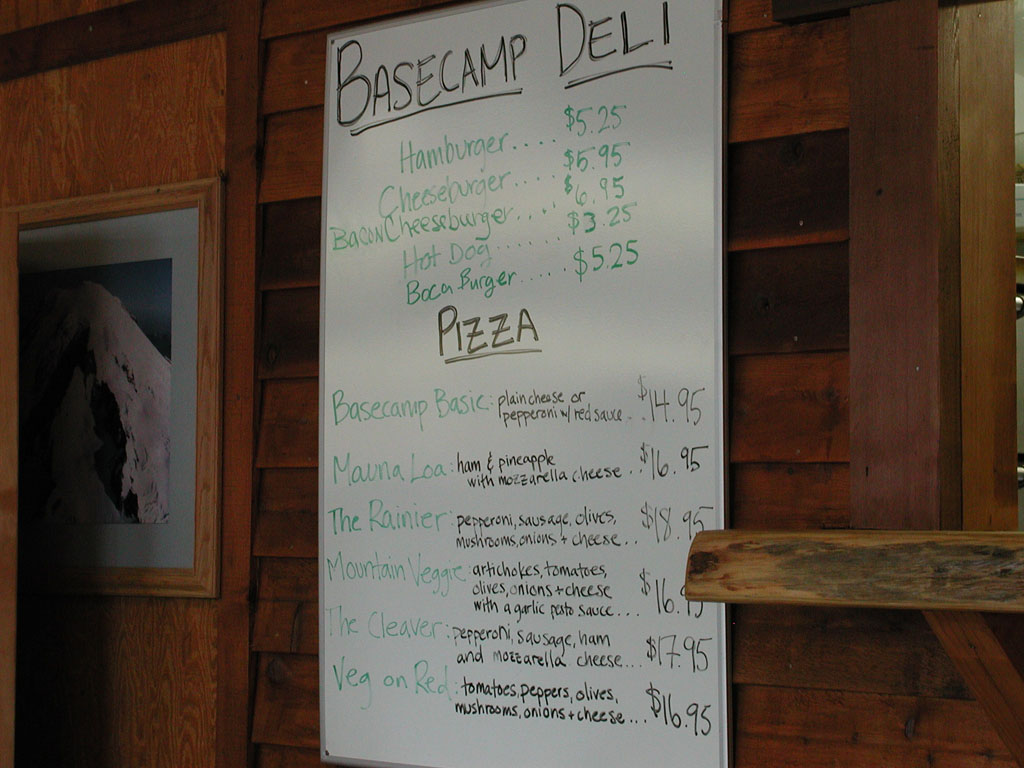 BASECAMP DELI
Hamburger.... $5.25
Cheeseburger.... $5.95
Bacon Cheeseburger.... $6.95
Hot Dog...... $3.25
Boca Burger..... $5.25
PIZZA
Basecamp Basic: plain cheese or
pepperoni w/ red sauce.. $14.95
Mauna Loa: ham & pineapple
with mozzarella cheese... $16.95
The Rainier: pepperoni, sausage, olives,
mushrooms, onions + cheese... $18.95
Mountain Veggie: artichokes, tomatoes,
olives, onions + cheese
with a garlic pesto sauce.... $16.95
The Cleaver: pepperoni, sausage, ham
and mozzarella cheese... $17.95
Veg on Red: tomatoes, peppers, olives,
mushrooms, onions + cheese... $16.95